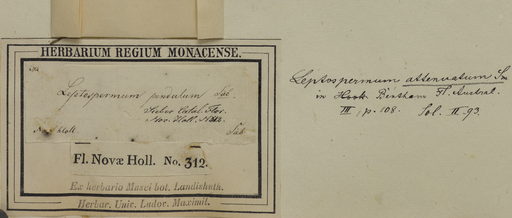 HERBARIUM REGIUM MONACENSE.
Leptospermum pendulum Sieb.
Sieber Catal. Flor.
Nov. Holl.
Nov. Holl.
Sieb
Fl. Novæ Holl. No. 312.
Ex herbario Musei bot. Landishuth.
Herbar. Univ. Ludov. Maximil.
Leptospermum attenuatum Sm
in Bentham Fl. Austral.
III. p. 108. Sol. II 93.